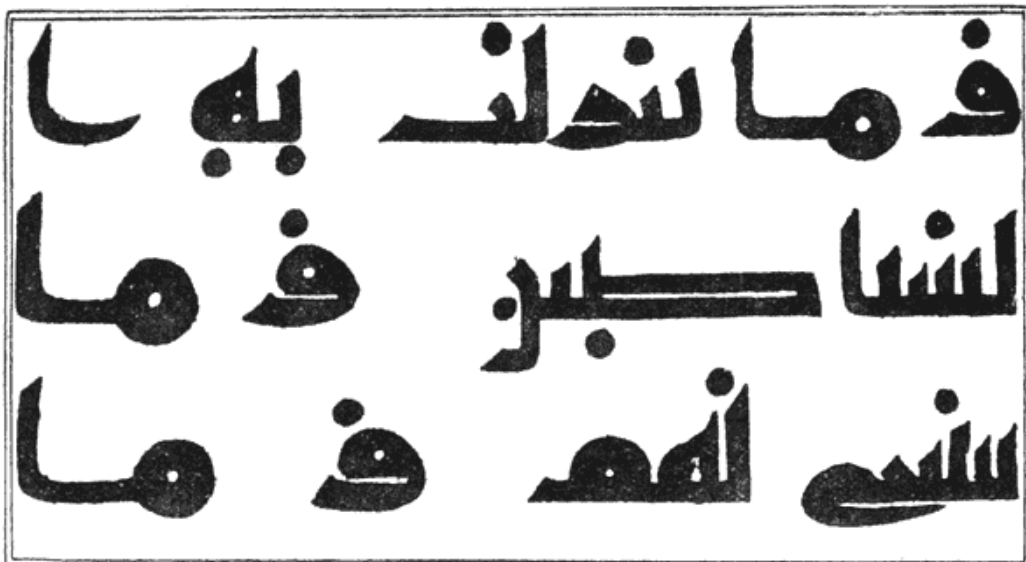 و ما تنزلت به ا
لشيا طين و ما
ينبغي لهم و ما